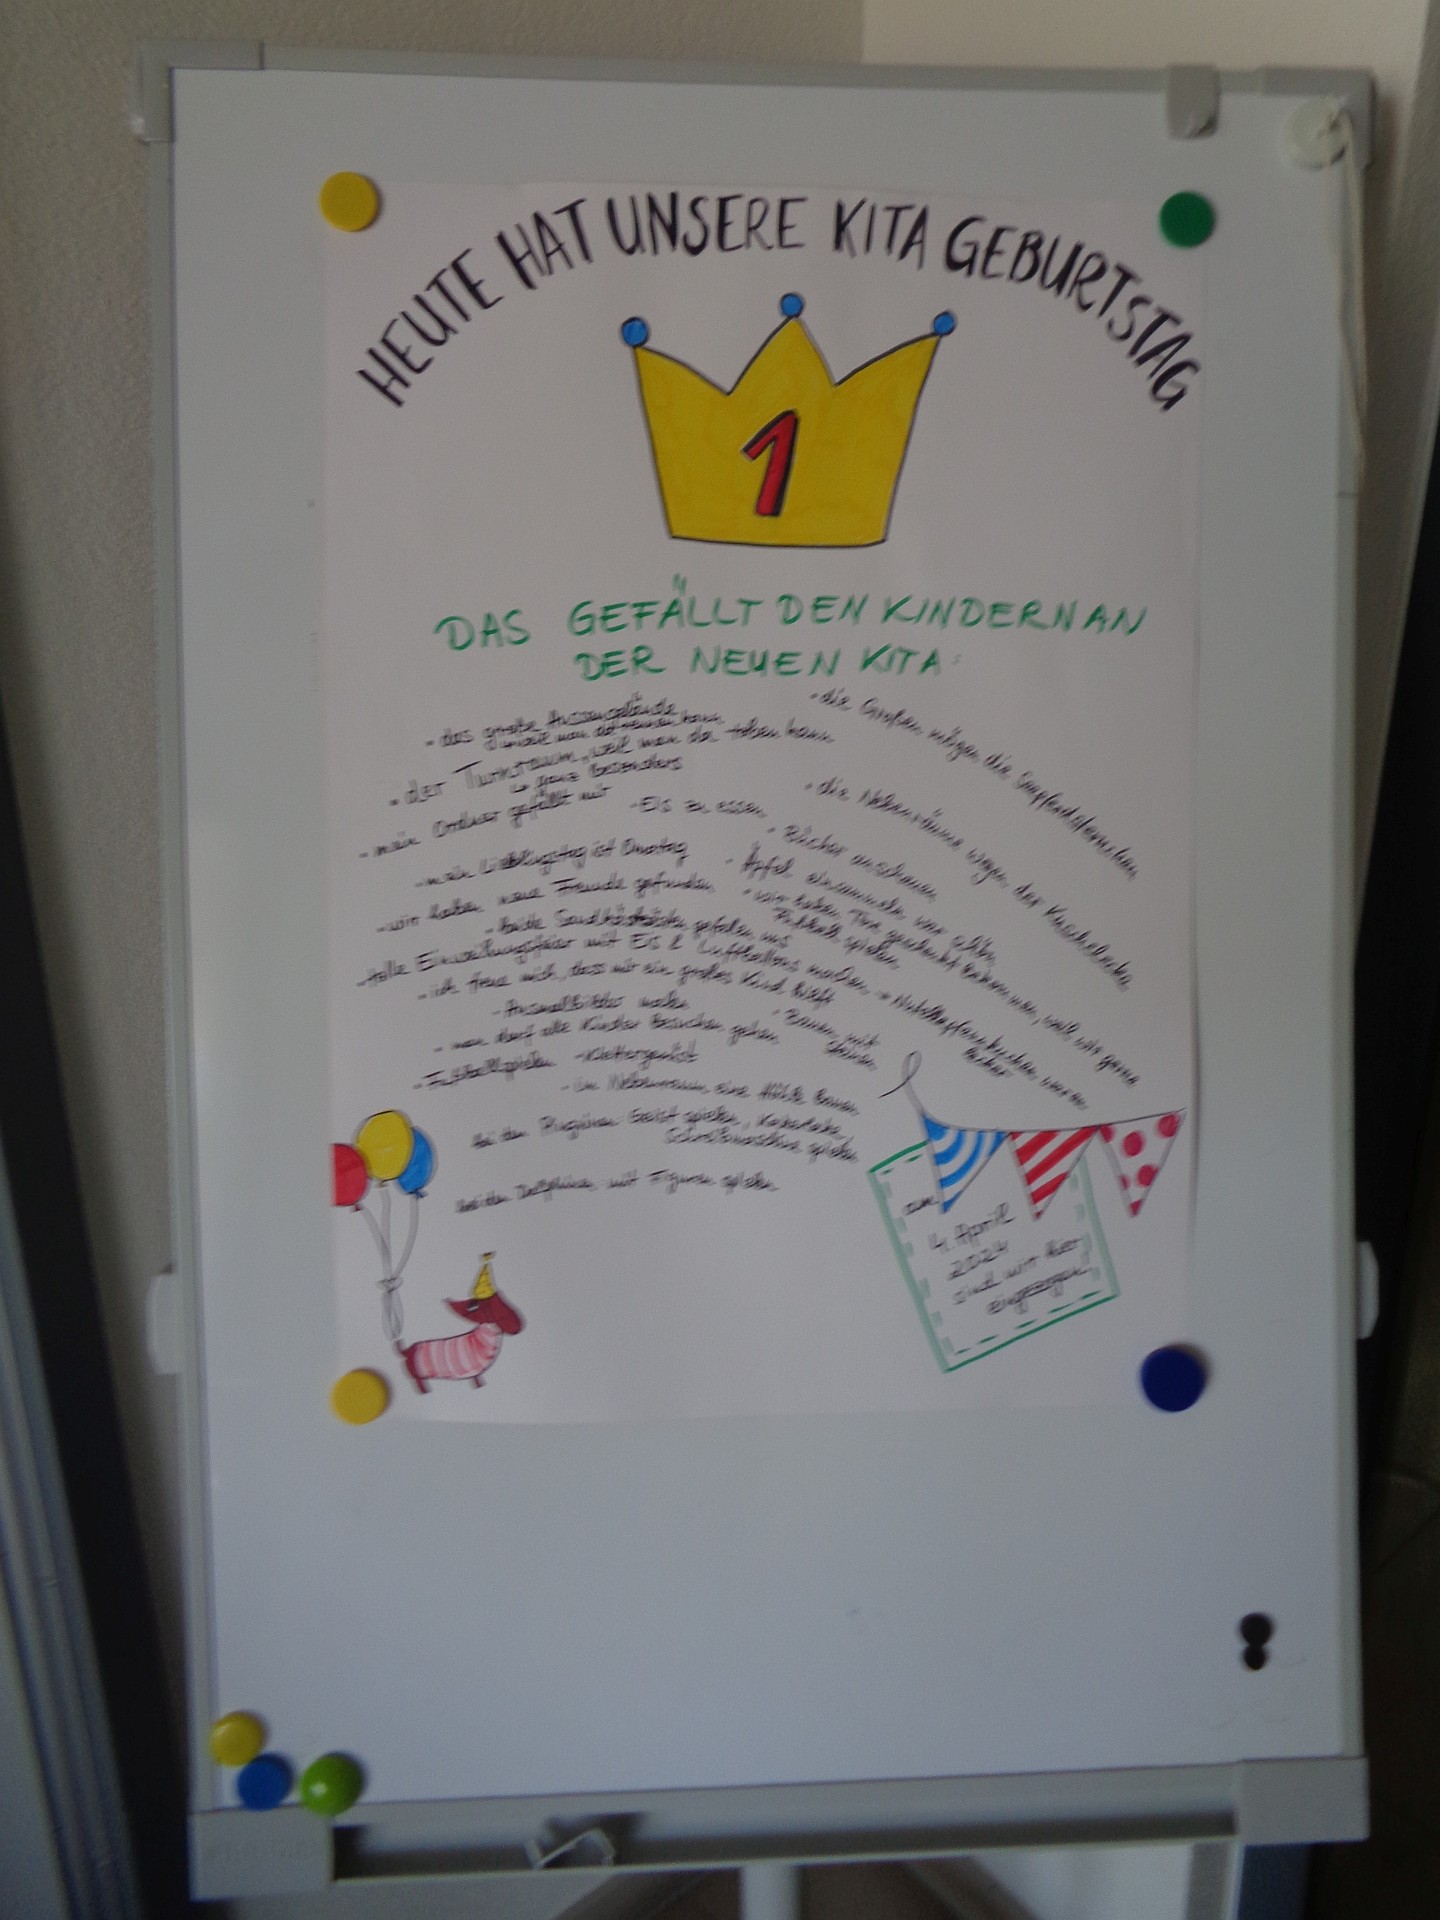 HEUTE HAT UNSERE KITA GEBURTSTAG
1
DAS GEFÄLLT DEN KINDERN AN
DER NEUEN KITA:
- das große Aussengelände
weil man da rennen kann
- der Turnraum, weil man da toben kann
ganz besonders
- mein Ordner gefällt mir
- Eis zu essen
- mein Lieblingstag ist Omatag
- wir haben neue Freunde gefunden
- beide Sandkästen gefallen uns
- tolle Einweihungsfeier mit Eis & Luftballons
- ich freue mich, dass mir ein großes Kind hilft
- Ausmalbilder malen
- man darf alle Kinder besuchen gehen
- Fußballspielen - Klettergerüst
- im Nebenraum eine Höhle bauen
bei den Pinguinen: Geist spielen,
Schreibmaschine spielen
mit Figuren spielen
- die Großen mögen die
- die Nebenräume wegen der Kuschelecke
- Bücher anschauen
- Äpfel einsammeln war schön
- wir haben Tore geschenkt bekommen, weil wir gerne
Fußball spielen
- Bauen mit
Steinen
am
4. April
2024
sind wir hier
eingezogen!